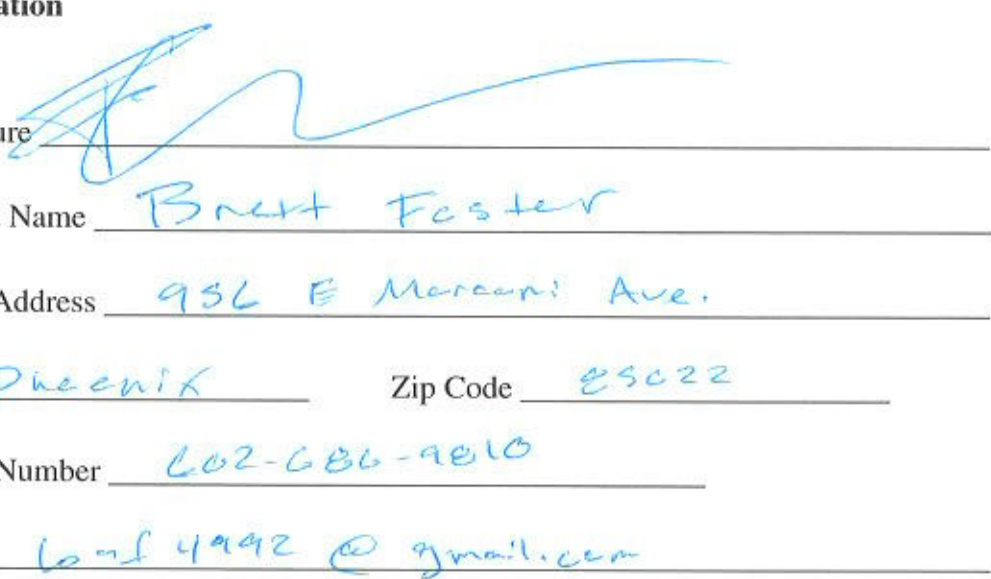 ation
ure
Name Brett Foster
Address 956 E Marconi Ave.
Phoenix Zip Code 85022
Number 602-686-9810
@gmail.com